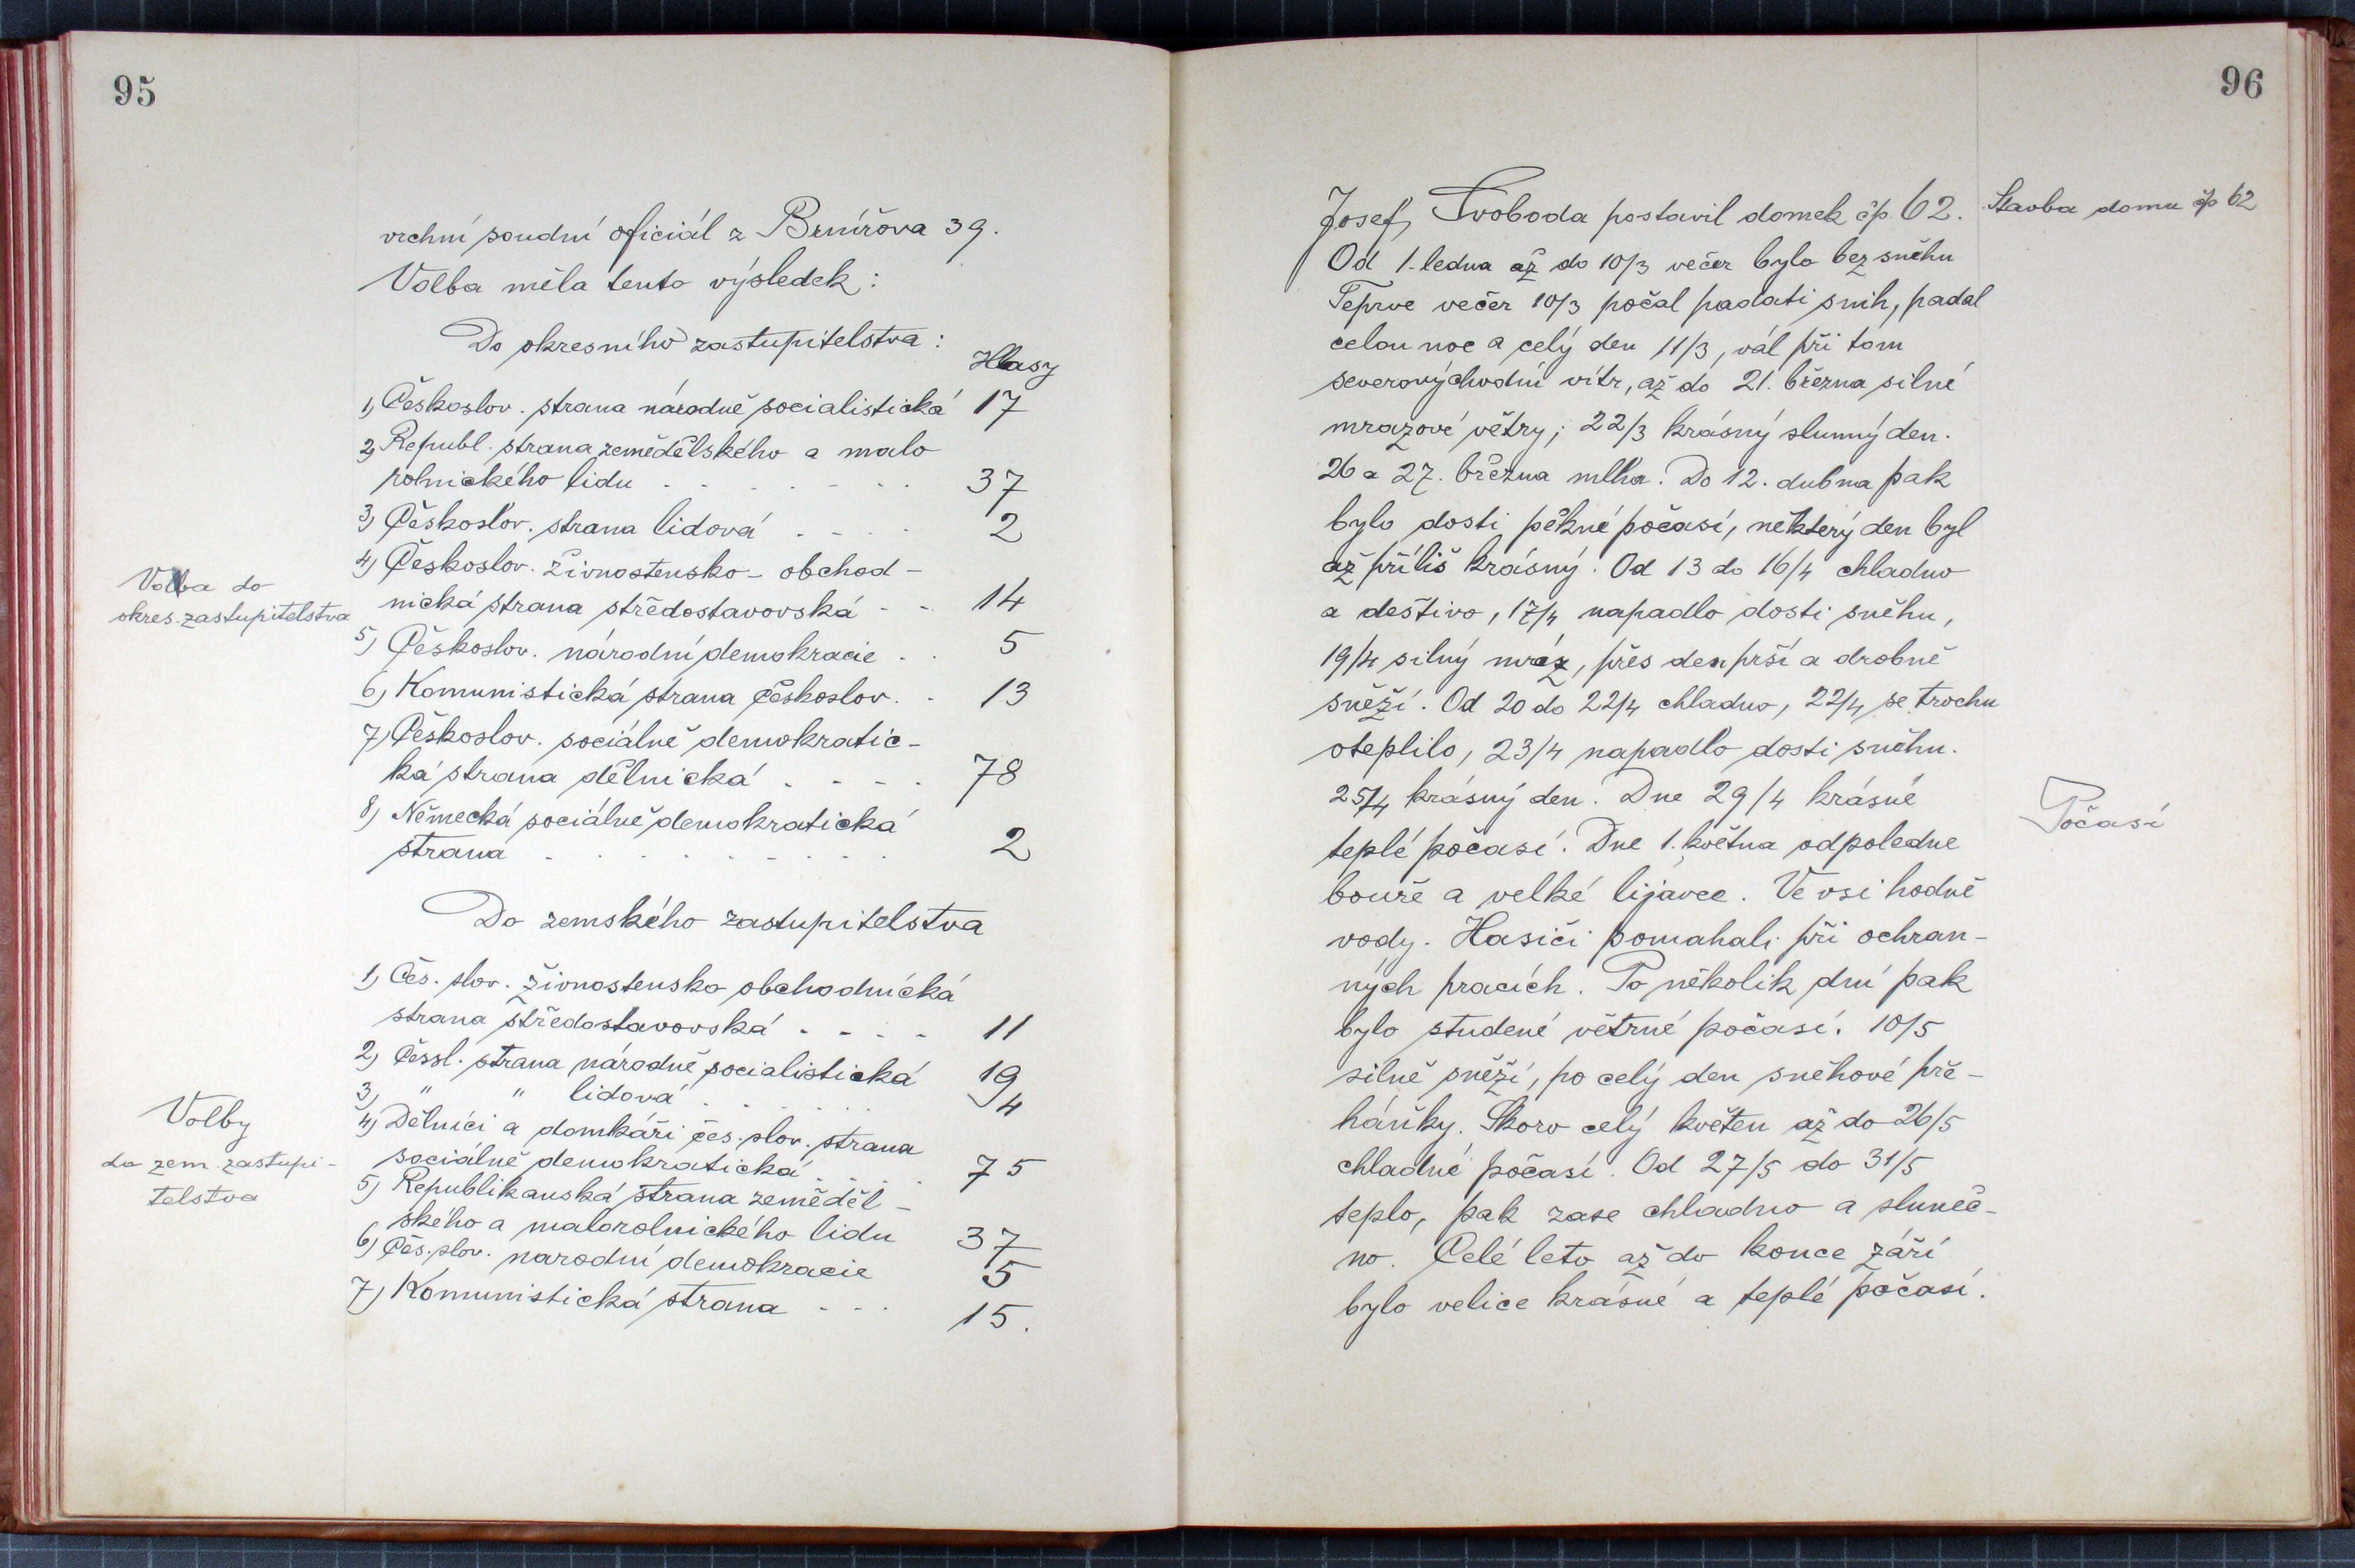 95
vrchní soudní oficiál z Brnířova 39.
Volba měla tento výsledek:
Do okresního zastupitelstva:
Hlasy
1) Českoslov. strana národně socialistická 17
2) Republ. strana zemědělského a malo
rolnického lidu . . . . . . . 37
3) Českoslov. strana lidová . . . . 2
4) Českoslov. živnostensko-obchod-
nická strana středostavovská - - 14
5) Českoslov. národní demokracie . . 5
6) Komunistická strana českoslov. . 13
7) Českoslov. sociálně demokratic-
ká strana dělnická . . . . 78
8) Německá sociálně demokratická
strana . . . . . . . . . 2
Volba do
okres. zastupitelstva
Do zemského zastupitelstva
1) Čes. slov. živnostensko obchodnická
strana středostavovská . - - - 11
2) Čessl. strana národně socialistická 19
3) " " lidová . . . . . . 4
4) Dělníci a domkáři čes. slov. strana
sociálně demokratická . . . . 75
5) Republikanská strana zeměděl-
ského a malorolnického lidu 37
6) Čes. slov. narodní demokracie 5
7) Komunistická strana - . . 15.
Volby
do zem. zastupi-
telstva
96
Josef Svoboda postavil domek čp. 62.
Stavba domu čp 62
Od 1. ledna až do 10/3 večer bylo bez sněhu
Teprve večer 10/3 počal padati snih, padal
celou noc a celý den 11/3, vál při tom
severovýchodní vítr, až do 21. března silné
mrazové větry; 22/3 krásný slunný den.
26 a 27. března mlha. Do 12. dubna pak
bylo dosti pěkné počasí, některý den byl
až příliš krásný. Od 13 do 16/4 chladno
a deštivo, 17/4 napadlo dosti sněhu,
19/4 silný mráz, přes den prší a drobně
sněží. Od 20 do 22/4 chladno, 22/4 se trochu
oteplilo, 23/4 napadlo dosti sněhu.
25/4 krásný den. Dne 29/4 krásné
teplé počasí. Dne 1. května odpoledne
bouře a velké lijavce. Ve vsi hodně
vody. Hasiči pomahali při ochran-
ných pracích. Po několik dní pak
bylo studené větrné počasí. 10/5
silně sněží, po celý den sněhové pře-
háňky. Skoro celý květen až do 26/5
chladné počasí. Od 27/5 do 31/5
teplo, pak zase chladno a sluneč-
no. Celé leto až do konce září
bylo velice krásné a teplé počasí.
Počasí